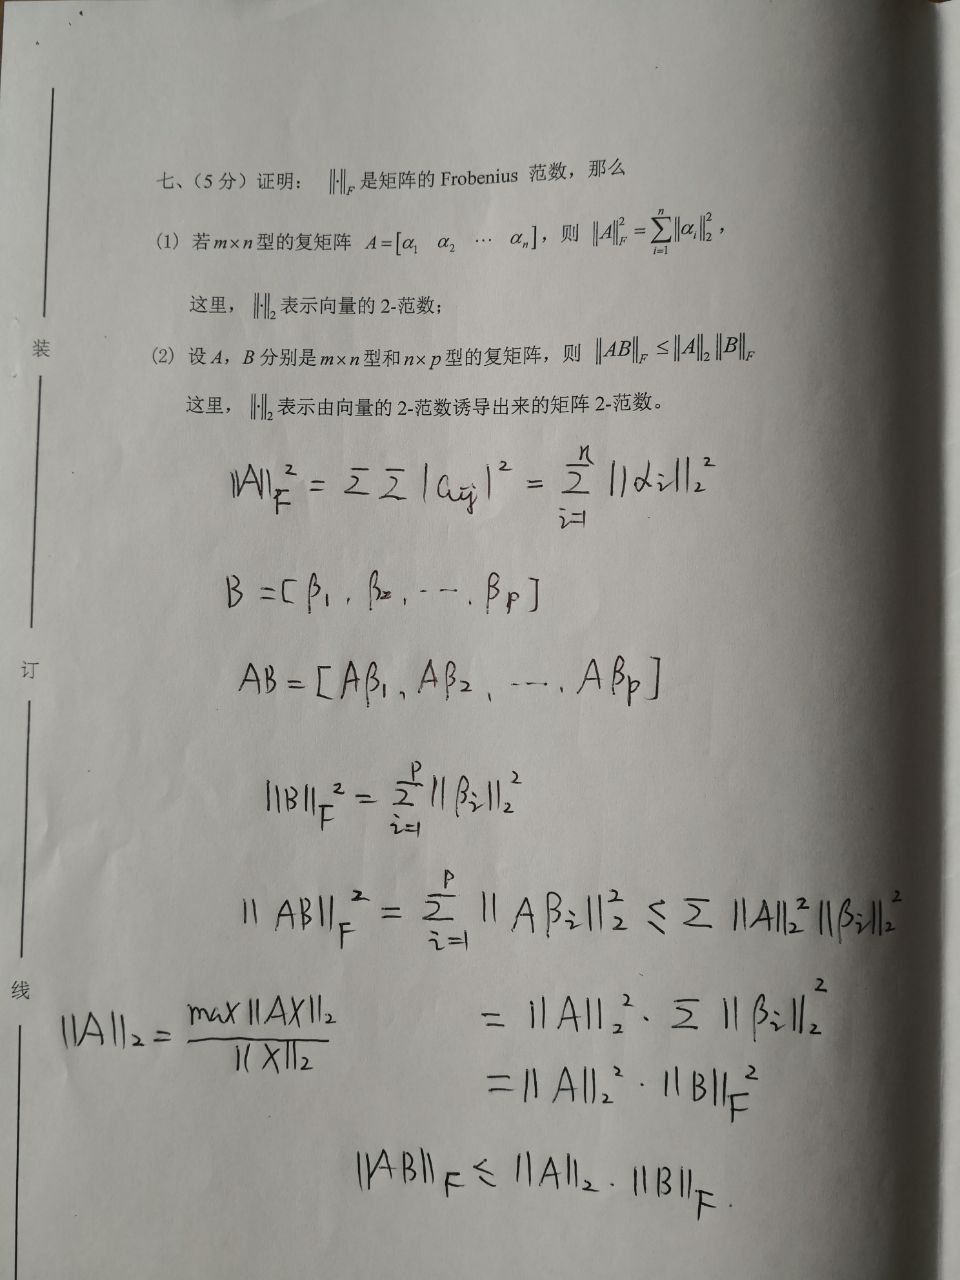 七、（5 分）证明： ‖·‖_F 是矩阵的 Frobenius 范数，那么
(1) 若 m×n 型的复矩阵 A=[α₁ α₂ ⋯ αₙ]，则 ‖A‖_F^2 = ∑_{i=1}^{n} ‖α_i‖_2^2，
这里，‖·‖₂ 表示向量的 2-范数；
(2) 设 A，B 分别是 m×n 型和 n×p 型的复矩阵，则 ‖AB‖_F ≤ ‖A‖₂ ‖B‖_F
这里，‖·‖₂ 表示由向量的 2-范数诱导出来的矩阵 2-范数。
装
订
线
‖A‖_F^2 = ∑ ∑ |a_{ij}|^2 = ∑_{i=1}^{n} ‖α_i‖_2^2
B = [β₁, β₂, ⋯, β_p]
AB = [Aβ₁, Aβ₂, ⋯, Aβ_p]
‖B‖_F^2 = ∑_{i=1}^{p} ‖β_i‖_2^2
‖AB‖_F^2 = ∑_{i=1}^{p} ‖Aβ_i‖_2^2 ≤ ∑ ‖A‖_2^2 ‖β_i‖_2^2
‖A‖₂ = max‖AX‖₂ / ‖X‖₂
= ‖A‖_2^2 · ∑ ‖β_i‖_2^2
= ‖A‖_2^2 · ‖B‖_F^2
‖AB‖_F ≤ ‖A‖₂ · ‖B‖_F.